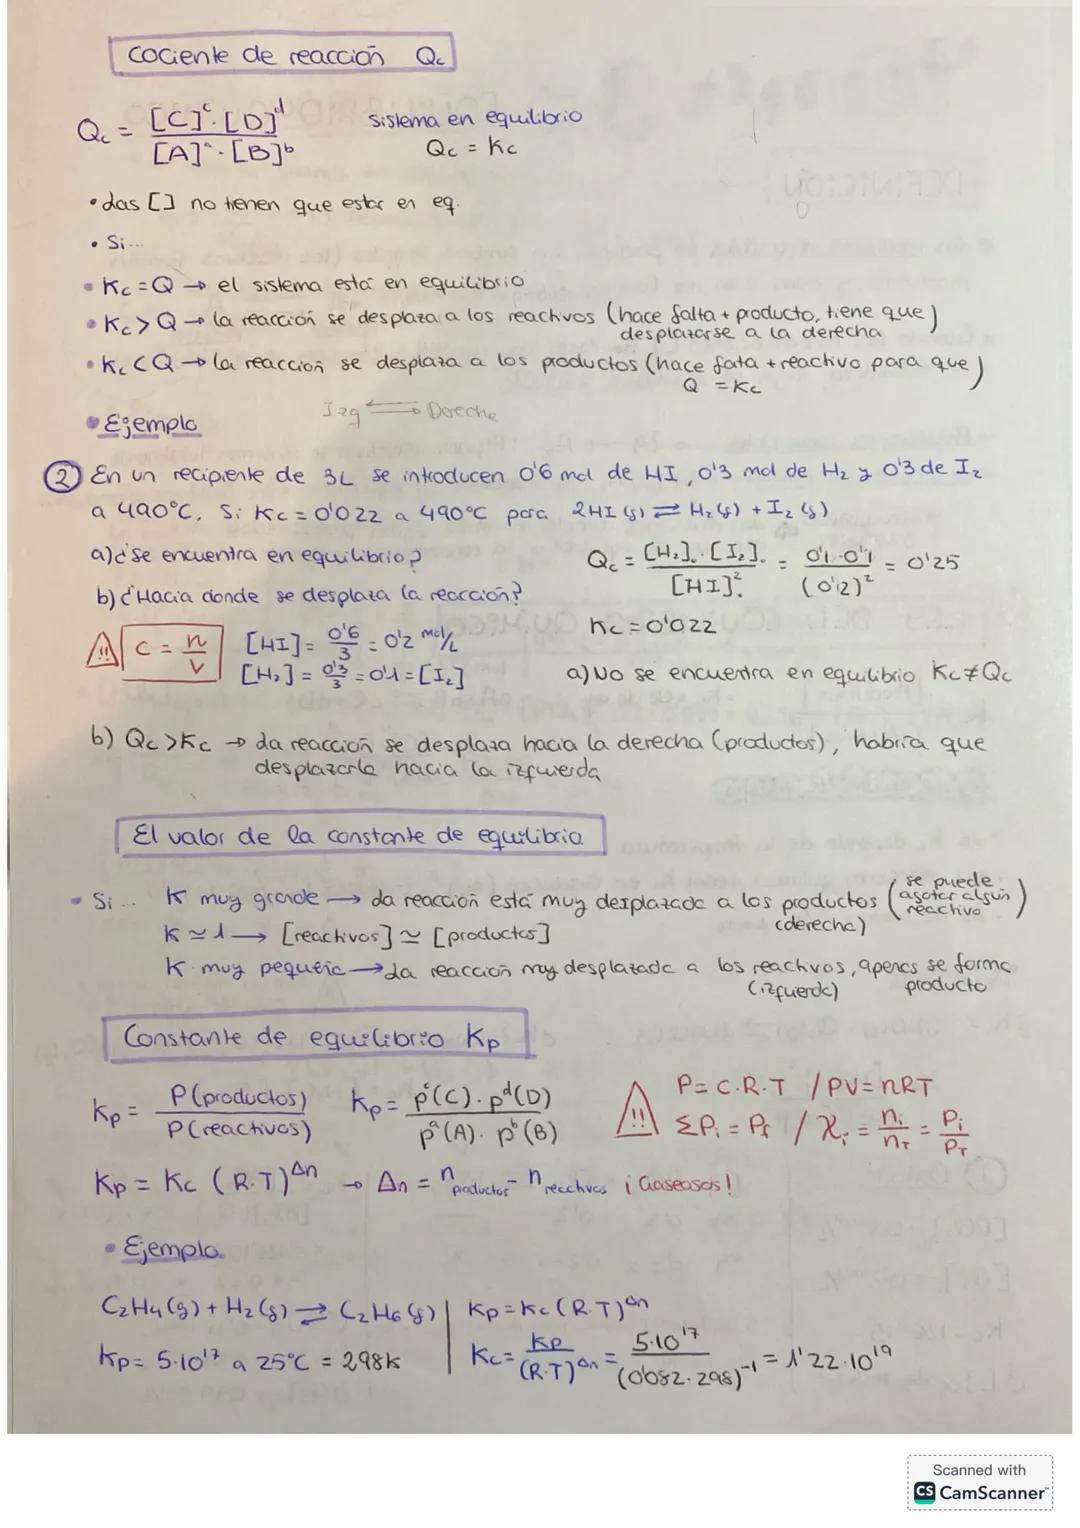 Cociente de reacción Qc
Qc = [C]^c · [D]^d / [A]^a · [B]^b
Sistema en equilibrio
Qc = Kc
• Las [] no tienen que estar en eq.
• Si...
• Kc = Q → el sistema está en equilibrio
• Kc > Q → la reacción se desplaza a los reactivos (hace falta + producto, tiene que desplazarse a la derecha)
• Kc < Q → la reacción se desplaza a los productos (hace fata + reactivo para que Q = Kc)
Izq ⇆ Dereche
• Ejemplo
② En un recipiente de 3L se introducen 0'6 mol de HI, 0'3 mol de H₂ y 0'3 de I₂
a 490°C. Si Kc = 0'022 a 490°C para 2HI (g) ⇌ H₂(g) + I₂ (g)
a) ¿Se encuentra en equilibrio?
b) ¿Hacia donde se desplaza la reacción?
Qc = [H₂]₀ · [I₂]₀ / [HI]₀² = 0'1 · 0'1 / (0'2)² = 0'25
Kc = 0'022
!! C = n / V
[HI] = 0'6 / 3 = 0'2 mol/L
[H₂] = 0'3 / 3 = 0'1 = [I₂]
a) No se encuentra en equilibrio Kc ≠ Qc
b) Qc > Kc → La reacción se desplaza hacia la derecha (productos), habría que
desplazarla hacia la izquierda
El valor de la constante de equilibrio
• Si .. K muy grande → La reacción está muy desplazada a los productos (derecha) (se puede agotar algún reactivo)
K ≃ 1 → [reactivos] ≃ [productos]
K muy pequeña → La reacción muy desplazada a los reactivos, apenas se forma
(izquierda) producto
Constante de equilibrio Kp
Kp = P(productos) / P(reactivos)
Kp = p^c(C) · p^d(D) / p^a(A) · p^b(B)
!! P = C·R·T / PV = nRT
ΣPi = Pt / χi = ni / nT = Pi / PT
Kp = Kc (R·T)^Δn → Δn = n productos - n reactivos ¡Gaseosos!
• Ejemplo
C₂H₄(g) + H₂(g) ⇌ C₂H₆(g)
Kp = 5·10¹⁷ a 25°C = 298K
Kp = Kc (R·T)^Δn
Kc = Kp / (R·T)^Δn = 5·10¹⁷ / (0'082·298)⁻¹ = 1'22·10¹⁹
Scanned with
CS CamScanner™